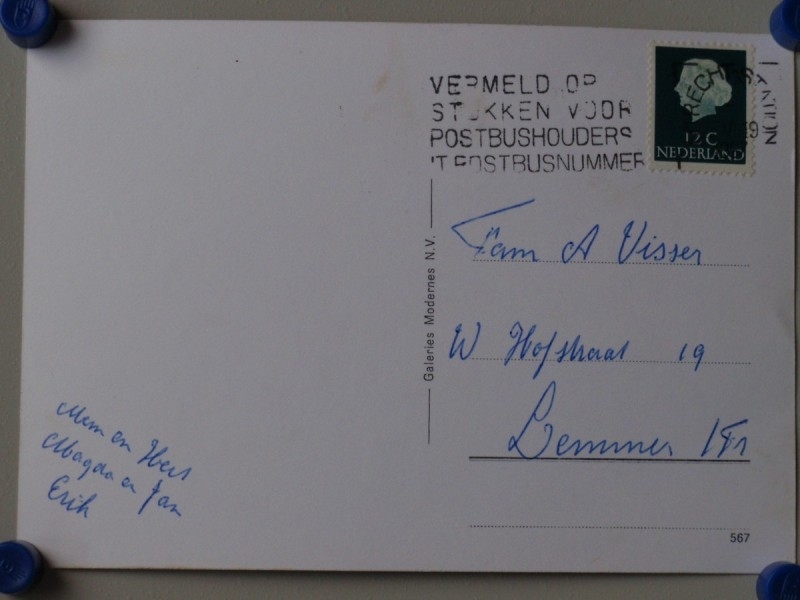 VERMELD OP
STUKKEN VOOR
POSTBUSHOUDERS
'T POSTBUSNUMMER
12 C
NEDERLAND
Fam A Visser
W Hofstraat 19
Lemmer / Fr
Galeries Modernes N.V.
Mem en Bert
Magda en Jan
Erik
567